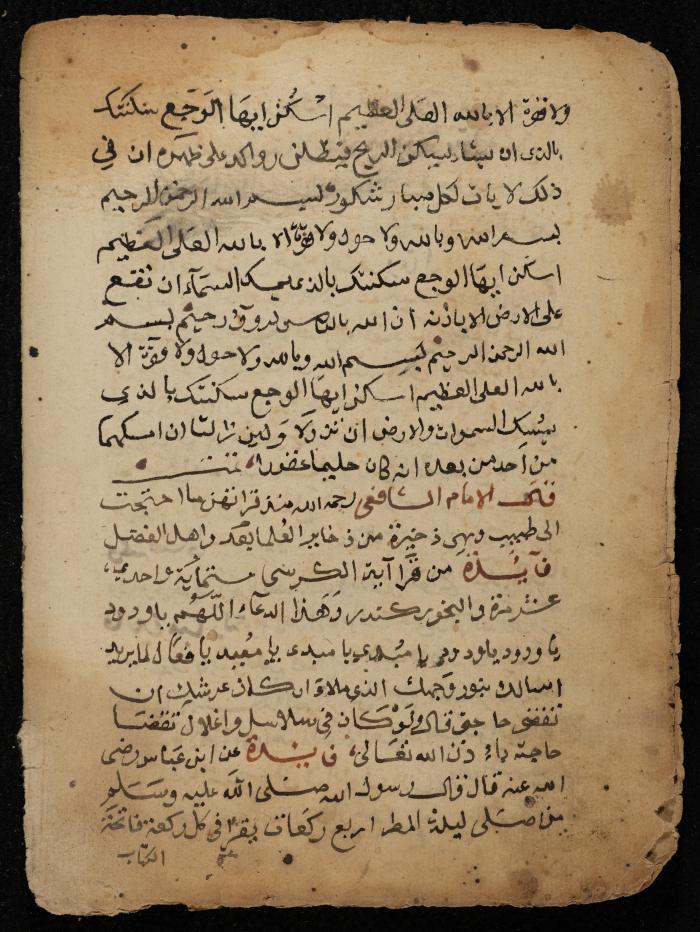 ولا قوة الا بالله العلى العظيم اسكن ايها الوجع سكنتك
بالذى ان يشا يسكن الريح فيظللن رواكد على ظهره ان في
ذلك لايات لكل صبار شكور بسم الله الرحمن الرحيم
بسم الله وبالله ولا حول ولا قوة الا بالله العلى العظيم
اسكن ايها الوجع سكنتك بالذي يمسك السمآء ان تقع
على الارض الا باذنه ان الله بالناس لروف رحيم بسم
الله الرحمن الرحيم بسم الله وبالله ولا حول ولا قوة الا
بالله العلى العظيم اسكن ايها الوجع سكنتك بالذي
يمسك السموات والارض ان تزولا ولين زالتا ان امسكهما
من احد من بعده انه كان حليما غفورا تمت
قال الامام الشافعى رحمه الله منذ قراتهن ما احتجت
الى طبيب وهى ذخيرة من ذخاير العلما واهل الفضل
فآيدة من قرا آية الكرسى ستماية واحدي
عشر مرة والبخور كندر وهذا الدعاء اللهم يا ودود
يا ودود يا ودود يا مبدي يا مبدي يا معيد يا فعال لما يريد
اسالك بنور وجهك الذي ملا اركان عرشك ان
تقضى حاجتى قال ولو كان في سلاسل واغلال تقضا
حاجته باذن الله تعالى فايدة عن ابن عباس رضى
الله عنه قال قال رسول الله صلى الله عليه وسلم
من صلى ليلة المطر اربع ركعات يقرا في كل ركعة فاتحة
الكتاب